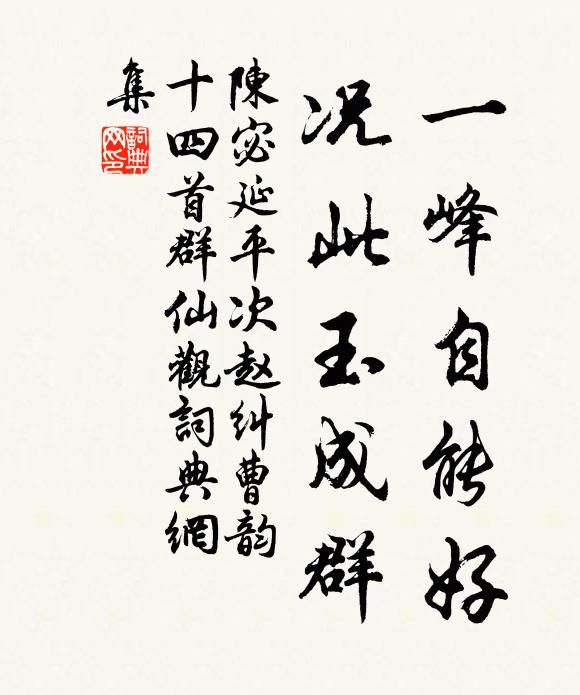 一峰自能好
况此玉成群
陳宓延平次赵纠曹韵
十四首群仙觀詞典網
集
詞典网印